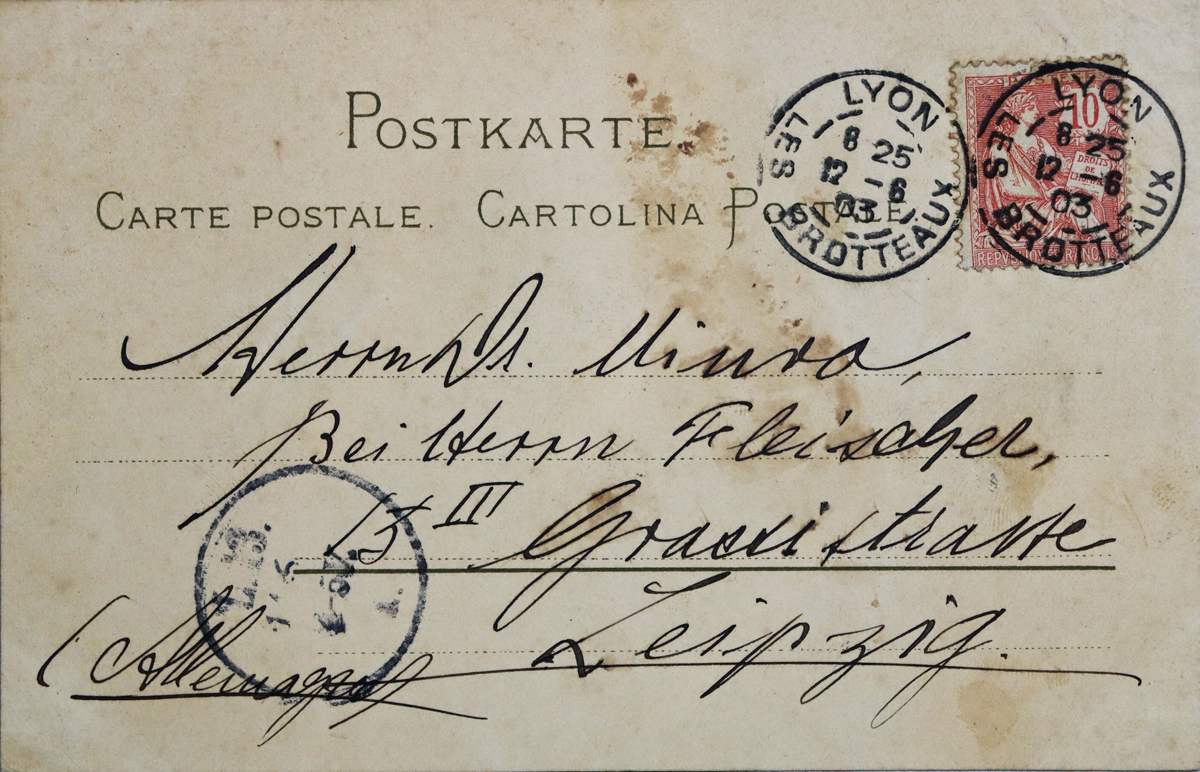 POSTKARTE.
CARTE POSTALE. CARTOLINA POSTALE
LYON
LES BROTTEAUX
8 25
12 - 6
03
LYON
LES BROTTEAUX
8 25
12 - 6
03
10
DROITS
DE
REPUBLIQUE FRANÇAISE
Herrn Dr. Miura,
Bei Herrn Fleischer,
15 III Grassistrasse
Leipzig.
(Allemagne)